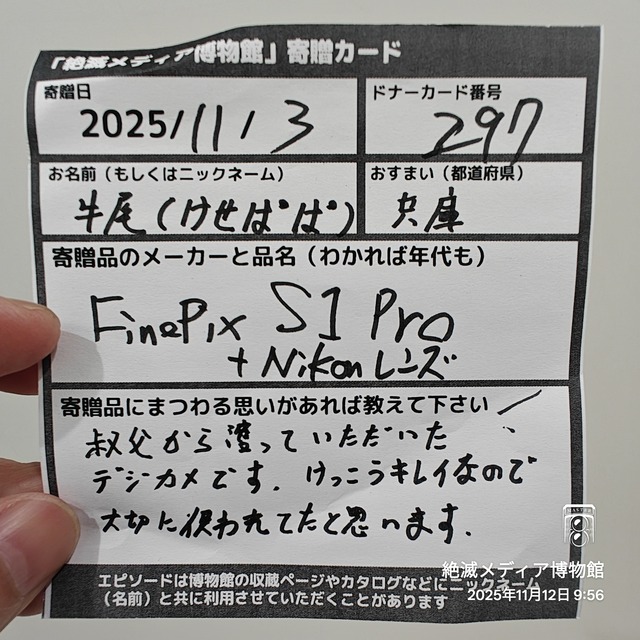 「絶滅メディア博物館」寄贈カード
寄贈日
2025/11/3
ドナーカード番号
297
お名前（もしくはニックネーム）
牛尾（けせぱぱ）
おすまい（都道府県）
兵庫
寄贈品のメーカーと品名（わかれば年代も）
FinePix S1 Pro
+ Nikonレンズ
寄贈品にまつわる思いがあれば教えて下さい
叔父から譲っていただいた
デジカメです。けっこうキレイなので
大切に使われてたと思います。
エピソードは博物館の収蔵ページやカタログなどにニックネーム
（名前）と共に利用させていただくことがあります
絶滅メディア博物館
2025年11月12日 9:56